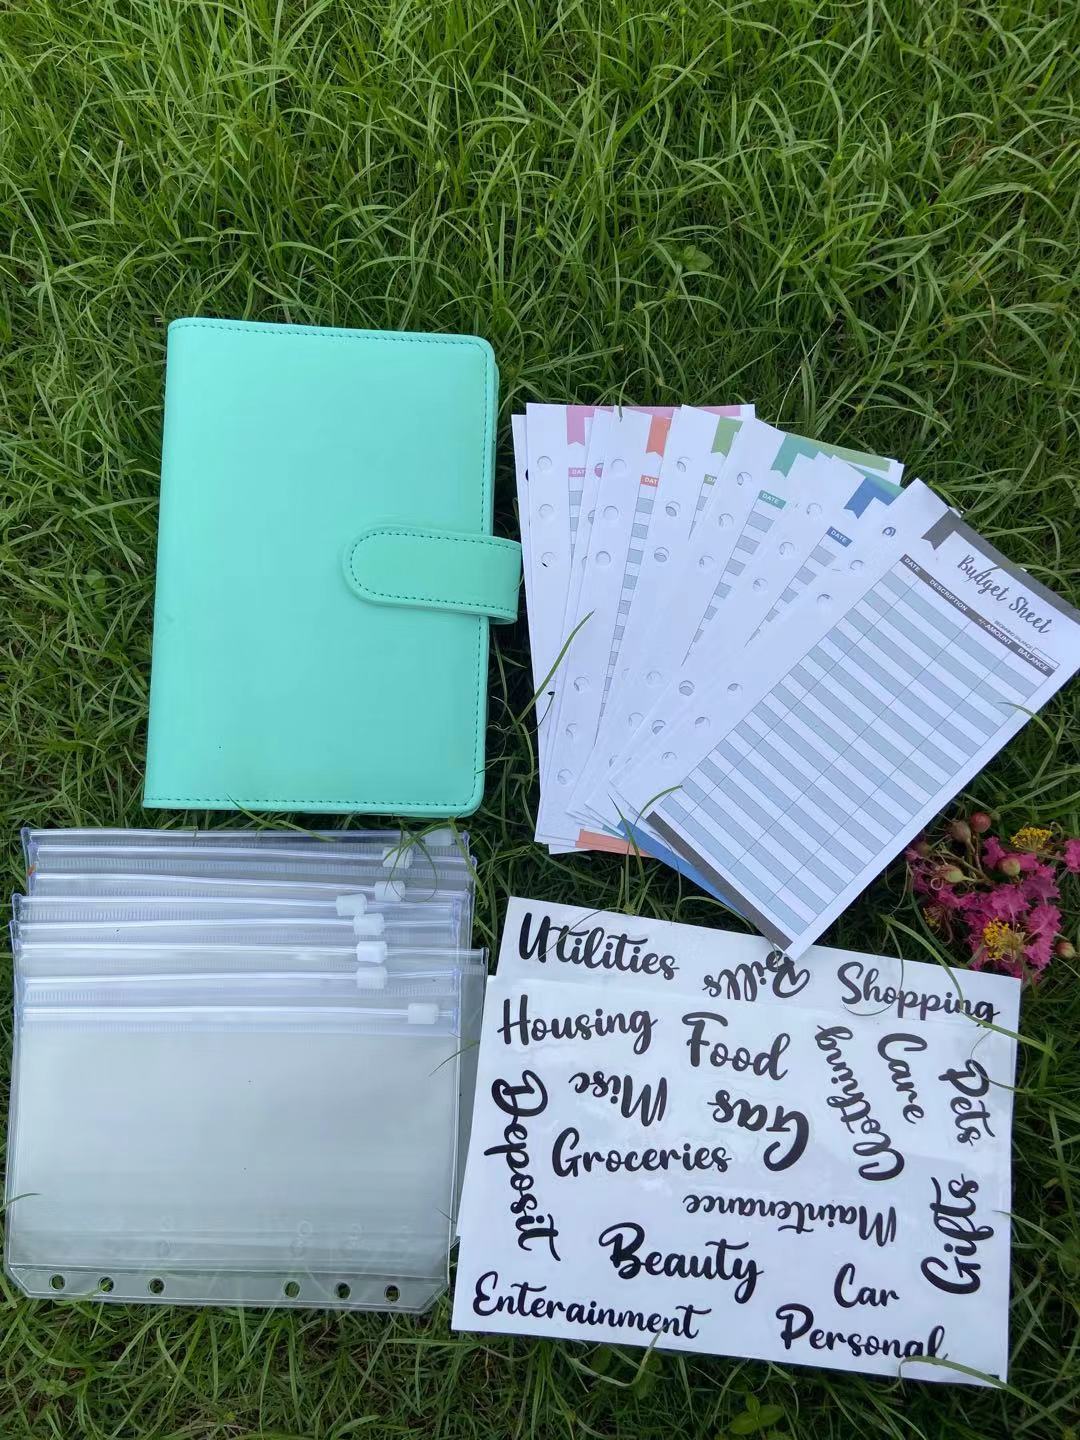 DATE
DATE
DATE
DATE
DATE
Budget Sheet
DATE DESCRIPTION +/- AMOUNT BALANCE
Utilities Bills Shopping
Housing Food Clothing Care Pets
Misc Gas
Deposit Groceries
Maintenance Gifts
Beauty Car
Enterainment Personal